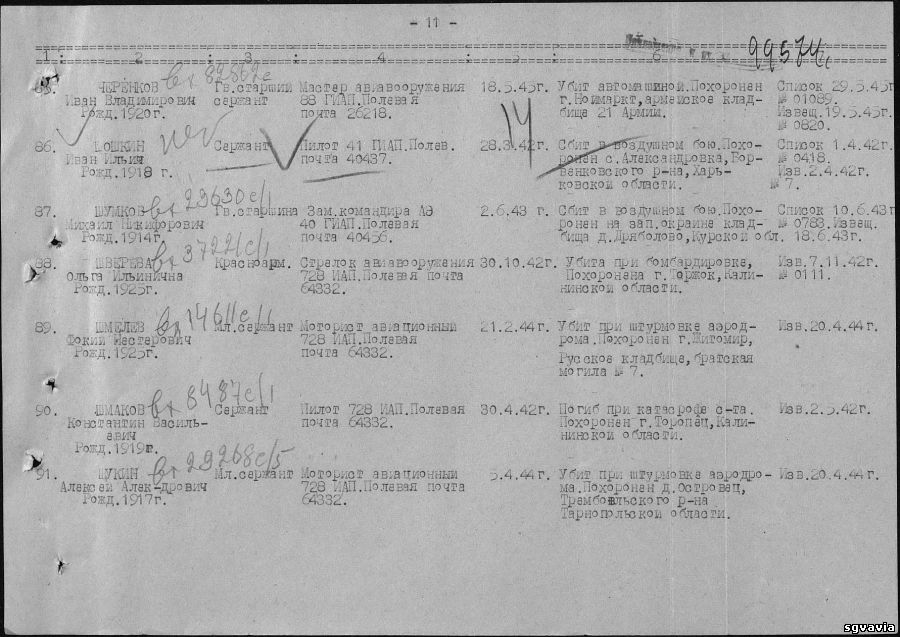 - 11 -
1. : 2 : 3 : 4 : 5 : 6 :
99574с
85. ЧЕРЕНКОВ Гв.старший Мастер авиавооружения 18.5.45г. Убит автомашиной.Похоронен Список 29.5.45г
вх 82862с
Иван Владимирович сержант 88 ГИАП.Полевая г.Ноймаркт,армейское клад- № 01089.
Рожд.1920г. почта 26218. бище 21 Армии. Извещ.19.5.45г.
№ 0820.
14
86. ШОШКИН Сержант Пилот 41 ГИАП.Полев. 28.3.42г. Сбит в воздушном бою.Похо- Список 1.4.42г.
нет
Иван Ильич почта 40437. ронен с.Александровка,Бар- № 0418.
Рожд.1918 г. венковского р-на,Харь- Изв.2.4.42г.
ковской области. № 7.
87. ШУМКОВ Гв.старшина Зам.командира АЭ 2.6.43 г. Сбит в воздушном бою.Похо- Список 10.6.43г
вх 23630с/1
Михаил Никифорович 40 ГИАП.Полевая ронен на зап.окраине клад- № 0783.Извещ.
Рожд.1914г. почта 40456. бища д.Дряболово,Курской обл. 18.6.43г.
вх 3722/с/1
88. ШВЕРЕВА Красноарм. Стрелок авиавооружения 30.10.42г. Убита при бомбардировке, Изв.7.11.42г.
Ольга Ильинична 728 ИАП.Полевая почта Похоронена г.Торжок,Кали- № 0111.
Рожд.1925г. 64332. нинской области.
вх 14611с/1
89. ШМЕЛЕВ Мл.сержант Моторист авиационный 21.2.44г. Убит при штурмовке аэрод- Изв.20.4.44г.
Фокий Нестерович 728 ИАП.Полевая рома.Похоронен г.Житомир,
Рожд.1925г. почта 64332. Русское кладбище,братская
могила № 7.
вх 8487с/1
90. ШМАКОВ Сержант Пилот 728 ИАП.Полевая 30.4.42г. Погиб при катасрофе с-та. Изв.2.5.42г.
Константин Василь- почта 64332. Похоронен г.Торопец,Кали-
евич нинской области.
Рожд.1919г.
вх 29268с/5
91. ШУКИН Мл.сержант Моторист авиационный 5.4.44г. Убит при штурмовке аэродро- Изв.20.4.44г.
Алексей Алек-дрович 728 ИАП.Полевая почта ма.Похоронен д.Островец,
Рожд.1917г. 64332. Трембовльского р-на
Тарнопольской области.
sgvavia